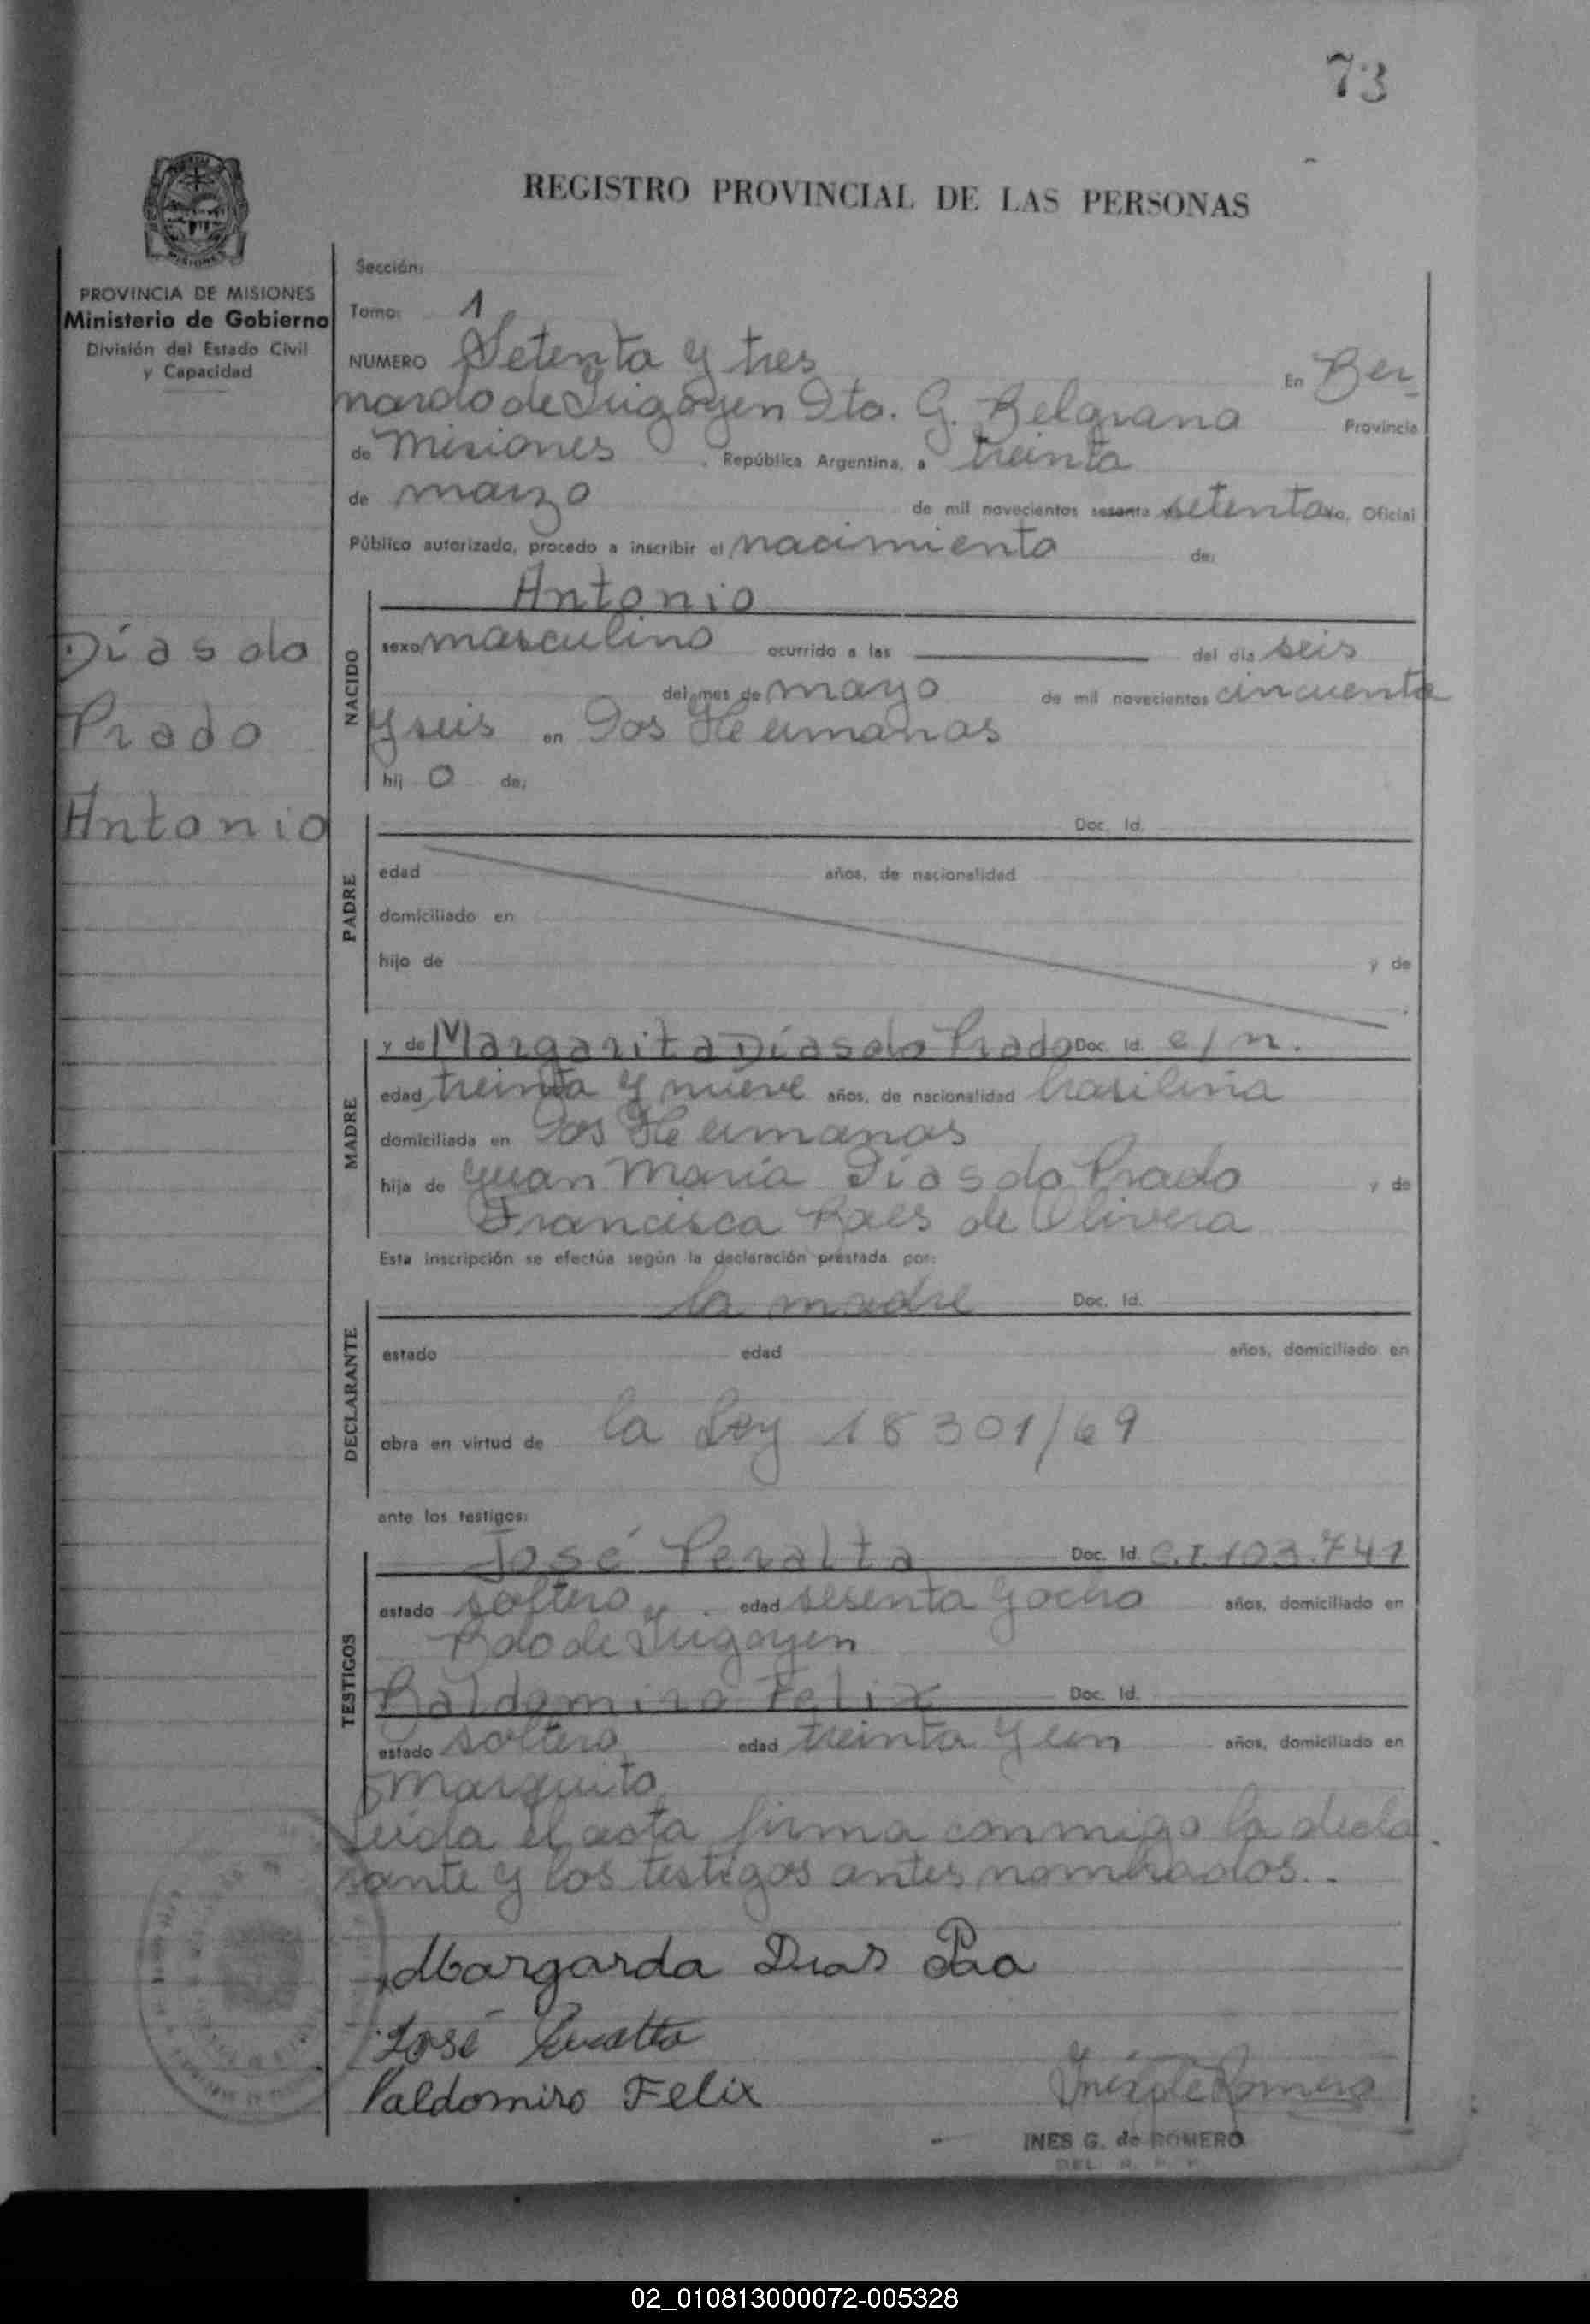 73
REGISTRO PROVINCIAL DE LAS PERSONAS
PROVINCIA DE MISIONES
Ministerio de Gobierno
División del Estado Civil
y Capacidad
Sección:
Tomo: 1
NUMERO Setenta y tres En Ber
nardo de Irigoyen Dto. G. Belgrano Provincia
de Misiones , República Argentina, a treinta
de marzo de mil novecientos sesenta setenta Yo, Oficial
Público autorizado, procedo a inscribir el nacimiento de:
Días do
Prado
Antonio
NACIDO
Antonio
sexo masculino ocurrido a las del día seis
del mes de mayo de mil novecientos cincuenta
y seis en Dos Hermanas
hij o de:
PADRE
Doc. Id.
edad años, de nacionalidad
domiciliado en
hijo de y de
MADRE
y de Margarita Días do Prado Doc. Id. e/n.
edad treinta y nueve años, de nacionalidad brasileña
domiciliada en Dos Hermanas
hija de Juan María Días do Prado y de
Francisca Raes de Olivera
Esta inscripción se efectúa según la declaración prestada por:
DECLARANTE
la madre Doc. Id.
estado edad años, domiciliado en
obra en virtud de la Ley 18301/69
ante los testigos:
TESTIGOS
José Peralta Doc. Id. C.I. 103.741
estado soltero edad sesenta y ocho años, domiciliado en
Bdo de Irigoyen
Baldomiro Felix Doc. Id.
estado soltero edad treinta y un años, domiciliado en
Marquito
Leida el acta firma conmigo la decla
rante y los testigos antes nombrados..
Margarda Dias Pra
José Peralta
Valdomiro Felix
Inés G de Romero
INES G. de ROMERO
DEL. R. P. P.
02_010813000072-005328